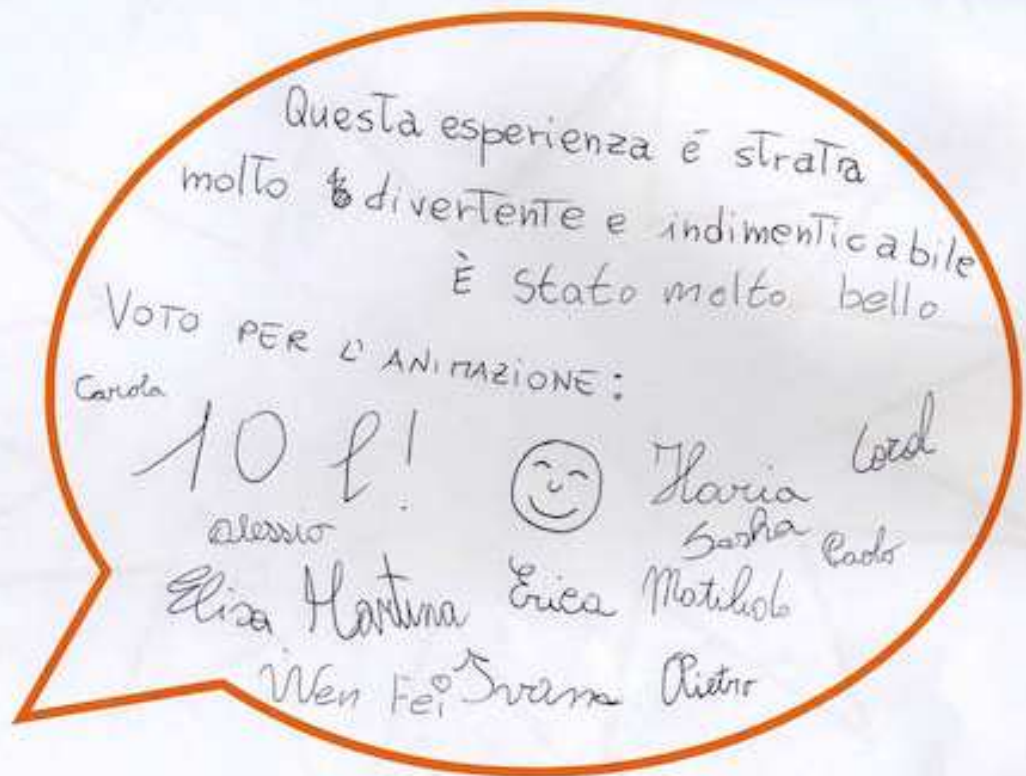 Questa esperienza é stratra
molto divertente e indimenticabile
È stato molto bello
VOTO PER L'ANIMAZIONE:
Carola
10 l!
Ilaria
Alessio
Sasha
Paolo
Elisa Martina Erica Matilde
Wen Fei Pietro